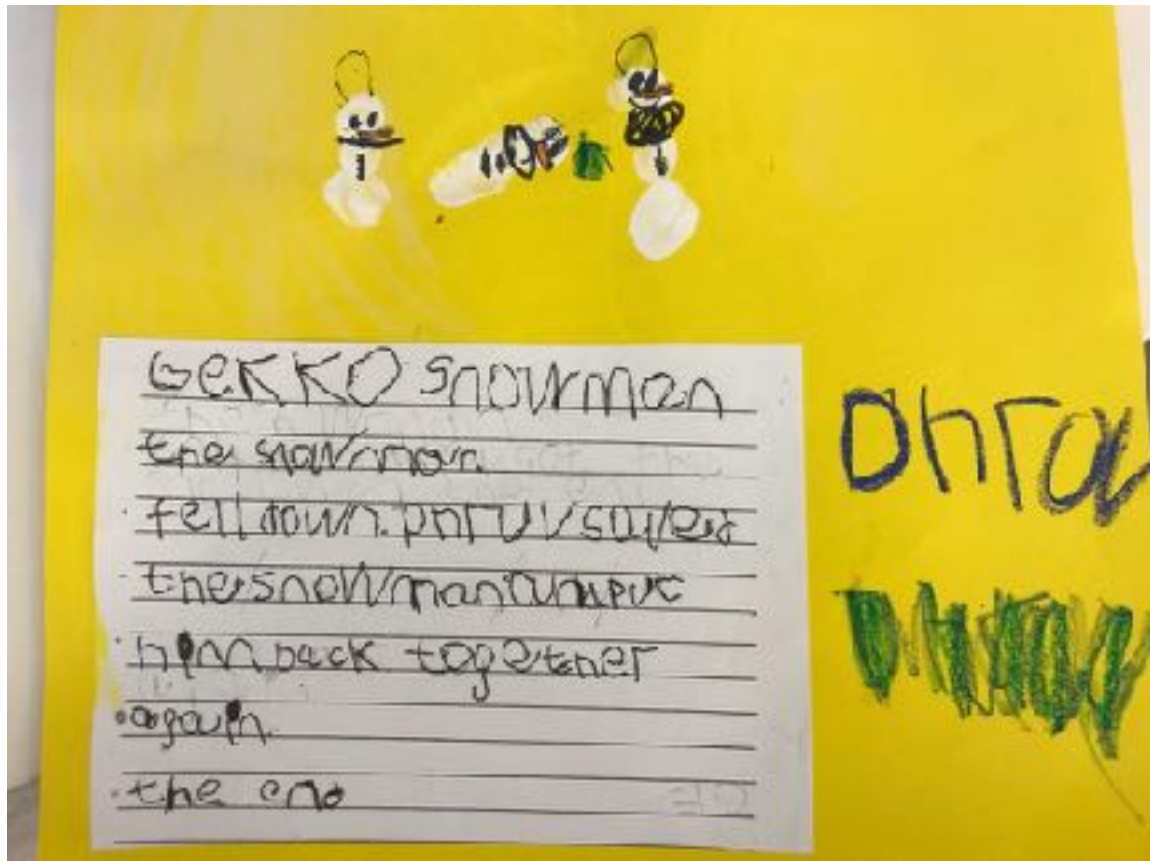 GEKKO Snowman
the snowman
fell down. Dhruv saved
the snowman and put
him back together
again.
the end